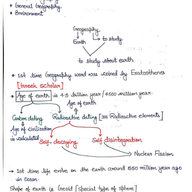 * General Geography
* Environment
Geography
Earth to study
to study about earth
* 1st time Geography word was coined by Eratosthenes
[Greek scholar]
* Age of earth → 5 billion year / 4500 million year.
Age of earth
Carbon dating Radioactive dating [Radioactive Elements]
Age of civilization is calculated
Self decaying Self disintegration
Nuclear Fission
* 1st time life evolve on the earth around 550 million years ago
in ocean.
Shape of earth is Geoid [special type of sphere]